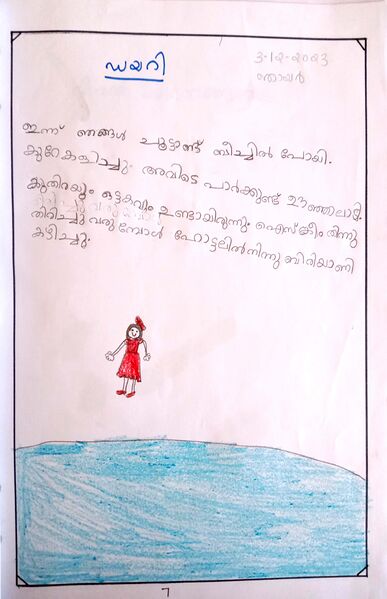 ഡയറി
3-12-2023
ഞായർ
ഇന്ന് ഞങ്ങൾ ചൂട്ടാണ്ട് ബീച്ചിൽ പോയി.
കുറേ കളിച്ചു. അവിടെ പാർക്കുണ്ട് ഊഞ്ഞലാടി.
കുതിരയും ഒട്ടകവും ഉണ്ടായിരുന്നു. ഐസ്ക്രീം തിന്നു
തിരിച്ചു വരുമ്പോൾ ഹോട്ടലിൽ നിന്നു ബിരിയാണി
കഴിച്ചു.
7